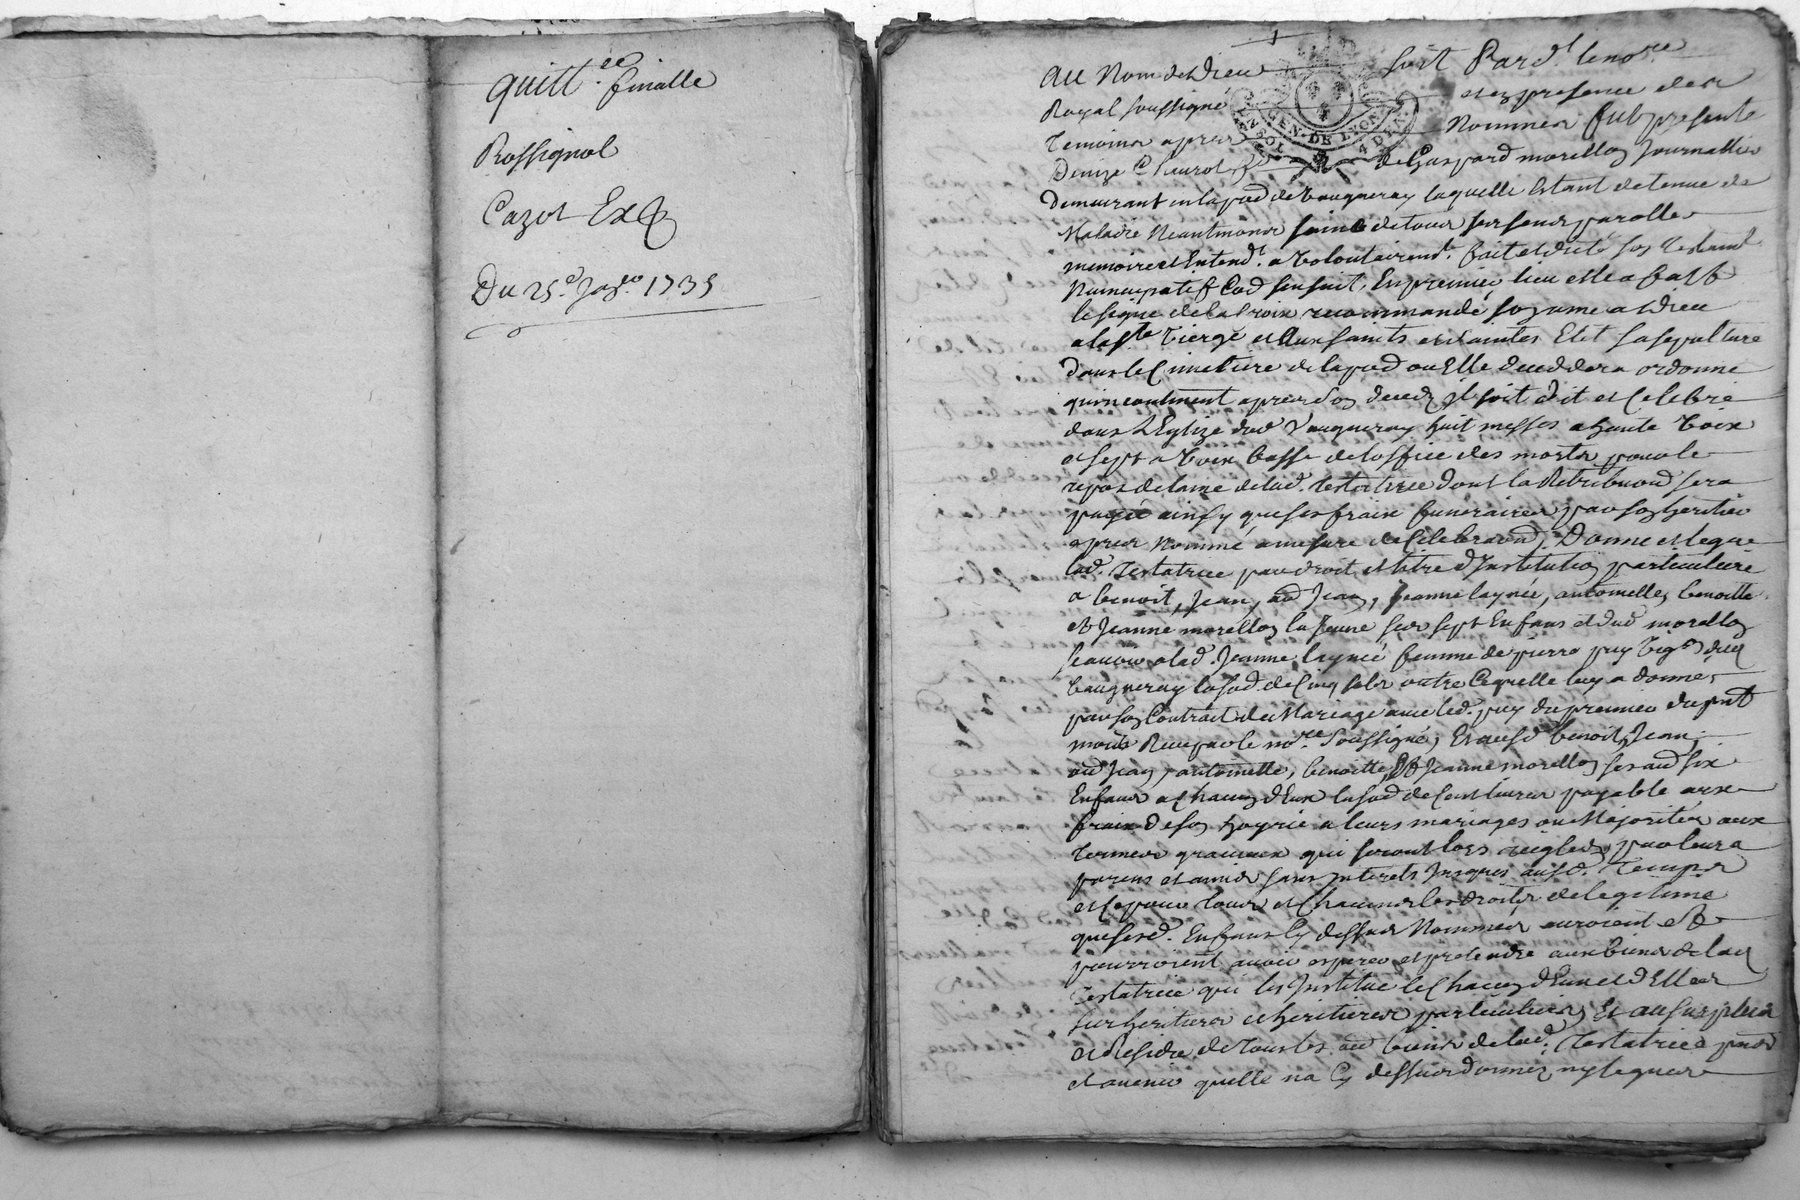 quitt.ce finalle
Rossignol
Cazot Exp
Du 25.e 1735
Au Nom de Dieu soit Pard.t le no.re
Royal soussigné et en presence des
Temoins apres Nommes fut presente
GEN. DE LYON
Denize de Gaspard morellon Journallier
demeurant en la par de Vaugneray laquelle Estant detenue de
Maladie Neantmoins saine de tous ses sens parolles
memoire et Entend.t a Volontairem.t fait et dicté son Testam.t
Nuncupatif Co͠e sensuit. En premier lieu elle a fait
le signe de la Croix recommandé son ame a Dieu
a la s.te Vierge et aux saints et saintes Elit sa sepulture
dans le Cimetiere de la par ou Elle deceddera ordonne
quincontinent apres son deceds il soit dit et Celebré
dans L'Eglize dud Vaugneray huit messes a haute Voix
et sept a Voix basse de loffice des morts pour le
repos de lame de lad. testatrice dont la Retribu͠on sera
payée ainsy que ses fraix funeraires par son heritier
apres Nommé a mesure de Celebra͠on. Donne et legue
lad. Testatrice par droit et titre d'Institution particuliere
a benoit, Jean, au͠e Jean, Jeanne laynée, antoinette, benoitte
et Jeanne morellon la Jeune ses sept Enfans et dud morellon
scavoir a lad. Jeanne laynée femme de pierre puy Vig.n dud
Vaugneray la so͠e de Cinq sols outre Ce quelle luy a donné
par son Contrait de Mariage avec led. puy du premier du pnt
mois Receu par le no.re Soussigné, Et ausd benoit, Jean,
au͠e Jean, antoinette, benoitte, Et Jeanne morellon ses au͠es six
Enfans a Chacun d'Eux la so͠e de Cent livres payable aux
fraix de son hoyrie a leurs mariages ou Majorités aux
termes gracieux qui seront lors reiglés par leurs
parens et amis sans interets Jusques ausd. Temps
et Ce pour tous et Chacuns les droits de legitime
que sesd. Enfans Cy dessus Nommés auroient et
pourroient avoir esperer et pretendre aux biens de lad
testatrice qui les Institue le Chacun d'Eux et d'Elles
ses heritiers et heritieres particuliers, Et au surplus
et Residu de tous les au͠es biens de lad. Testatrice
et avenir quelle na Cy dessus donnés ny legués